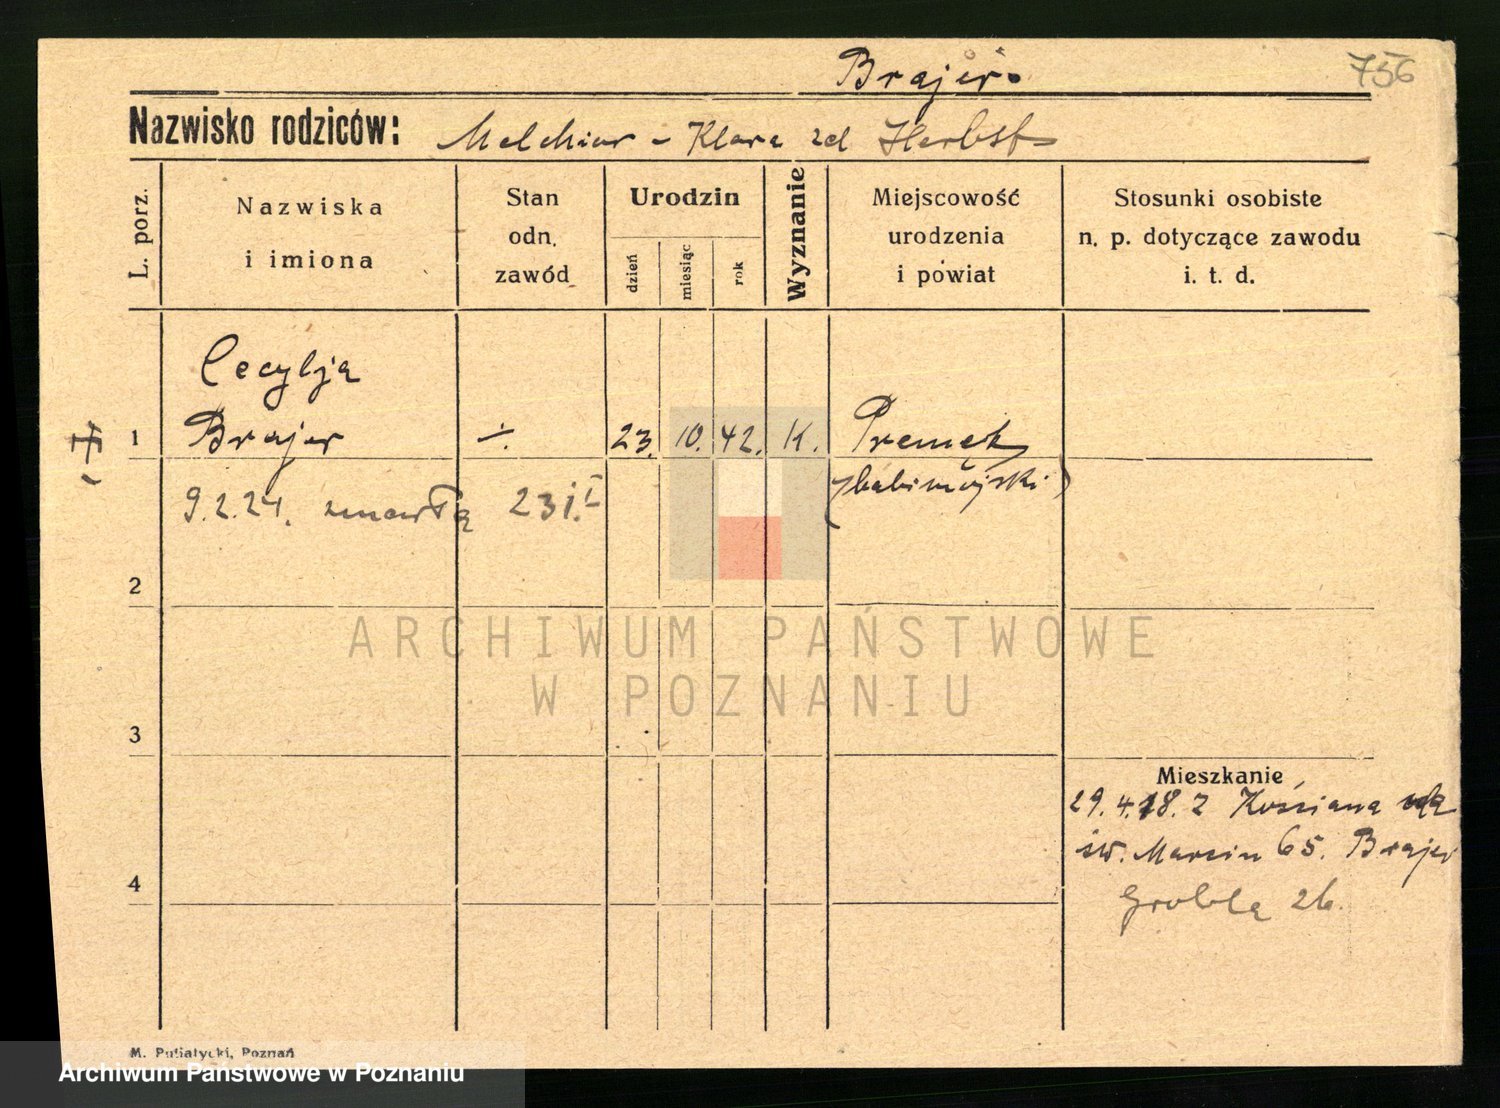 Brajer.
756
Nazwisko rodziców: Melchior - Klara zd Herbst
L. porz.
Nazwiska
i imiona
Stan
odn.
zawód
Urodzin
dzień
miesiąc
rok
Wyznanie
Miejscowość
urodzenia
i powiat
Stosunki osobiste
n. p. dotyczące zawodu
i. t. d.
Cecylja
1 Brajer ÷ 23. 10. 42. K. Premęt
(babimojski)
9.2.24. zmarła 23 j. I
2
ARCHIWUM PAŃSTWOWE
W POZNANIU
3
Mieszkanie
29.4.18. z Kościana
św. Marcin 65. Brajer
4
Grobla 26.
M. Putiatycki, Poznań
Archiwum Państwowe w Poznaniu